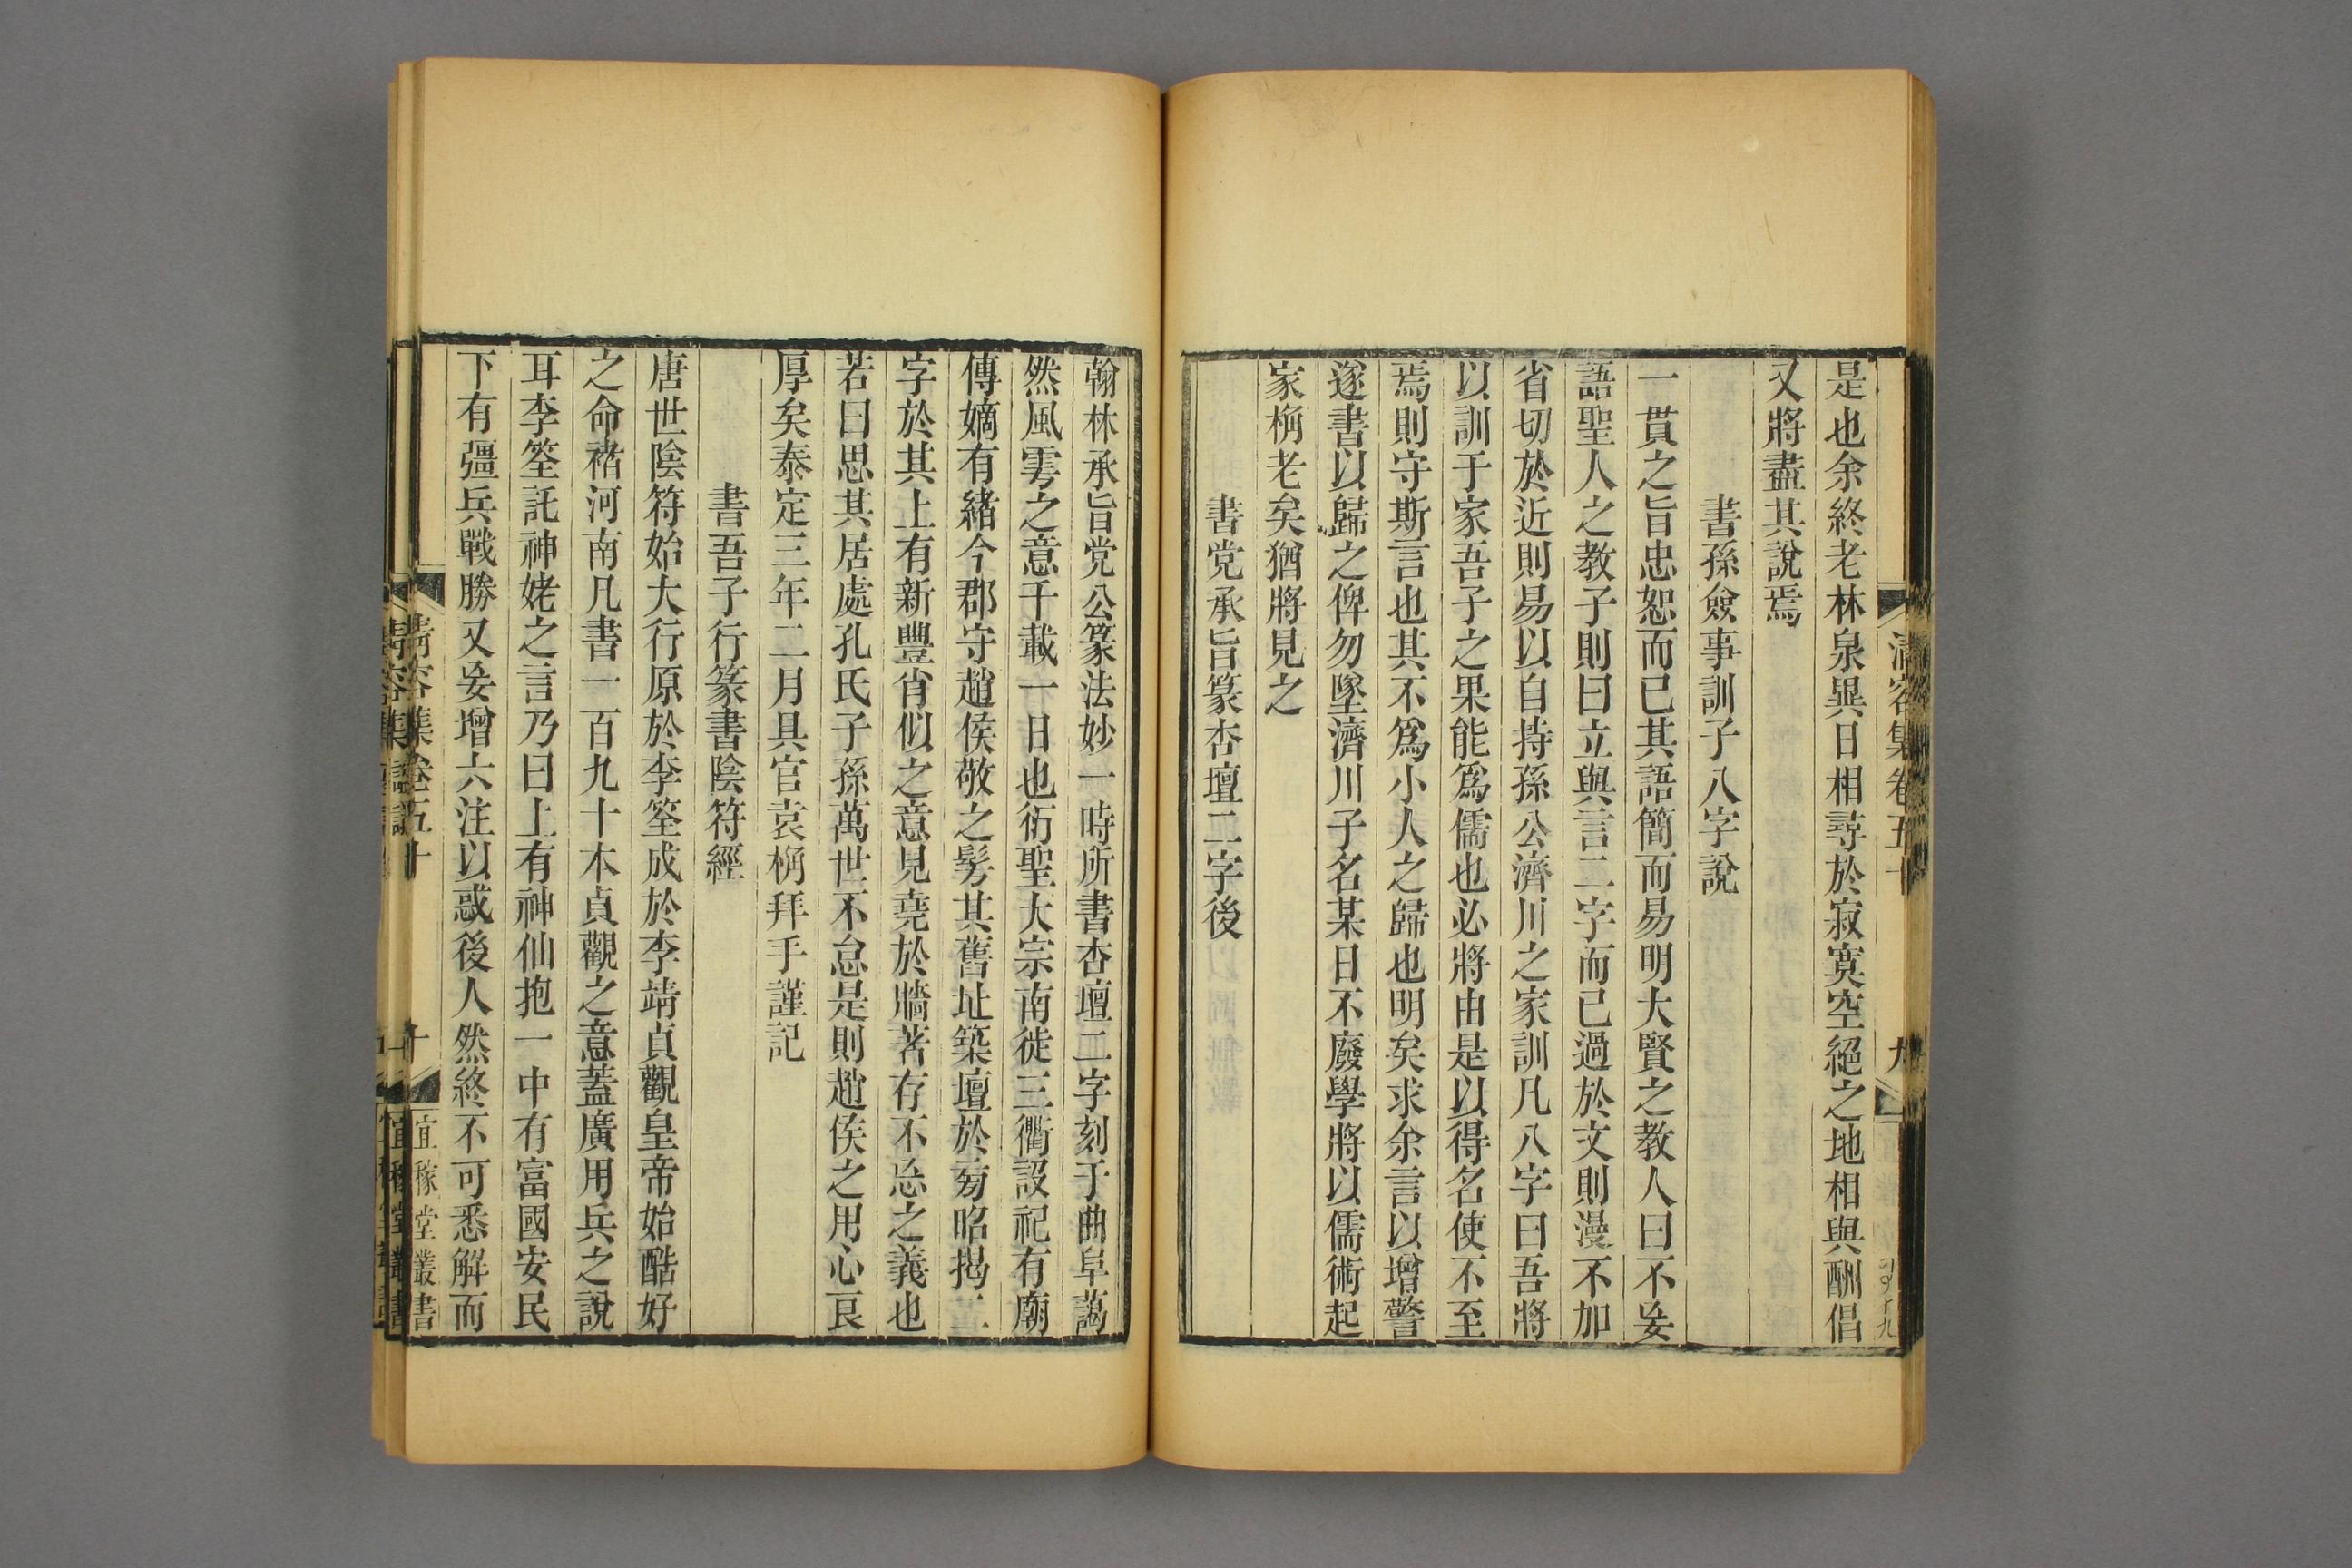 清容集卷五十
九
是也余終老林泉異日相尋於寂寞空絕之地相與酬倡
又將盡其說焉
書孫僉事訓子八字說
一貫之旨忠恕而已其語簡而易明大賢之教人曰不妄
語聖人之教子則曰立與言二字而已過於文則漫不加
省切於近則易以自持孫公濟川之家訓凡八字曰吾將
以訓于家吾子之果能爲儒也必將由是以得名使不至
焉則守斯言也其不爲小人之歸也明矣求余言以增警
遂書以歸之俾勿墜濟川子名某日不廢學將以儒術起
家桷老矣猶將見之
書党承旨篆杏壇二字後
翰林承旨党公篆法妙一時所書杏壇二字刻于曲阜藹
然風雩之意千載一日也衍聖大宗南徙三衢設祀有廟
傳嫡有緒今郡守趙侯敬之髣其舊址築壇於旁昭揭二
字於其上有新豐肖似之意見堯於牆著存不忘之義也
若曰思其居處孔氏子孫萬世不怠是則趙侯之用心良
厚矣泰定三年二月具官袁桷拜手謹記
書吾子行篆書陰符經
唐世陰符始大行原於李筌成於李靖貞觀皇帝始酷好
之命褚河南凡書一百九十本貞觀之意蓋廣用兵之說
耳李筌託神姥之言乃曰上有神仙抱一中有富國安民
下有彊兵戰勝又妄增六注以惑後人然終不可悉解而
清容集卷五十
十
宜稼堂叢書